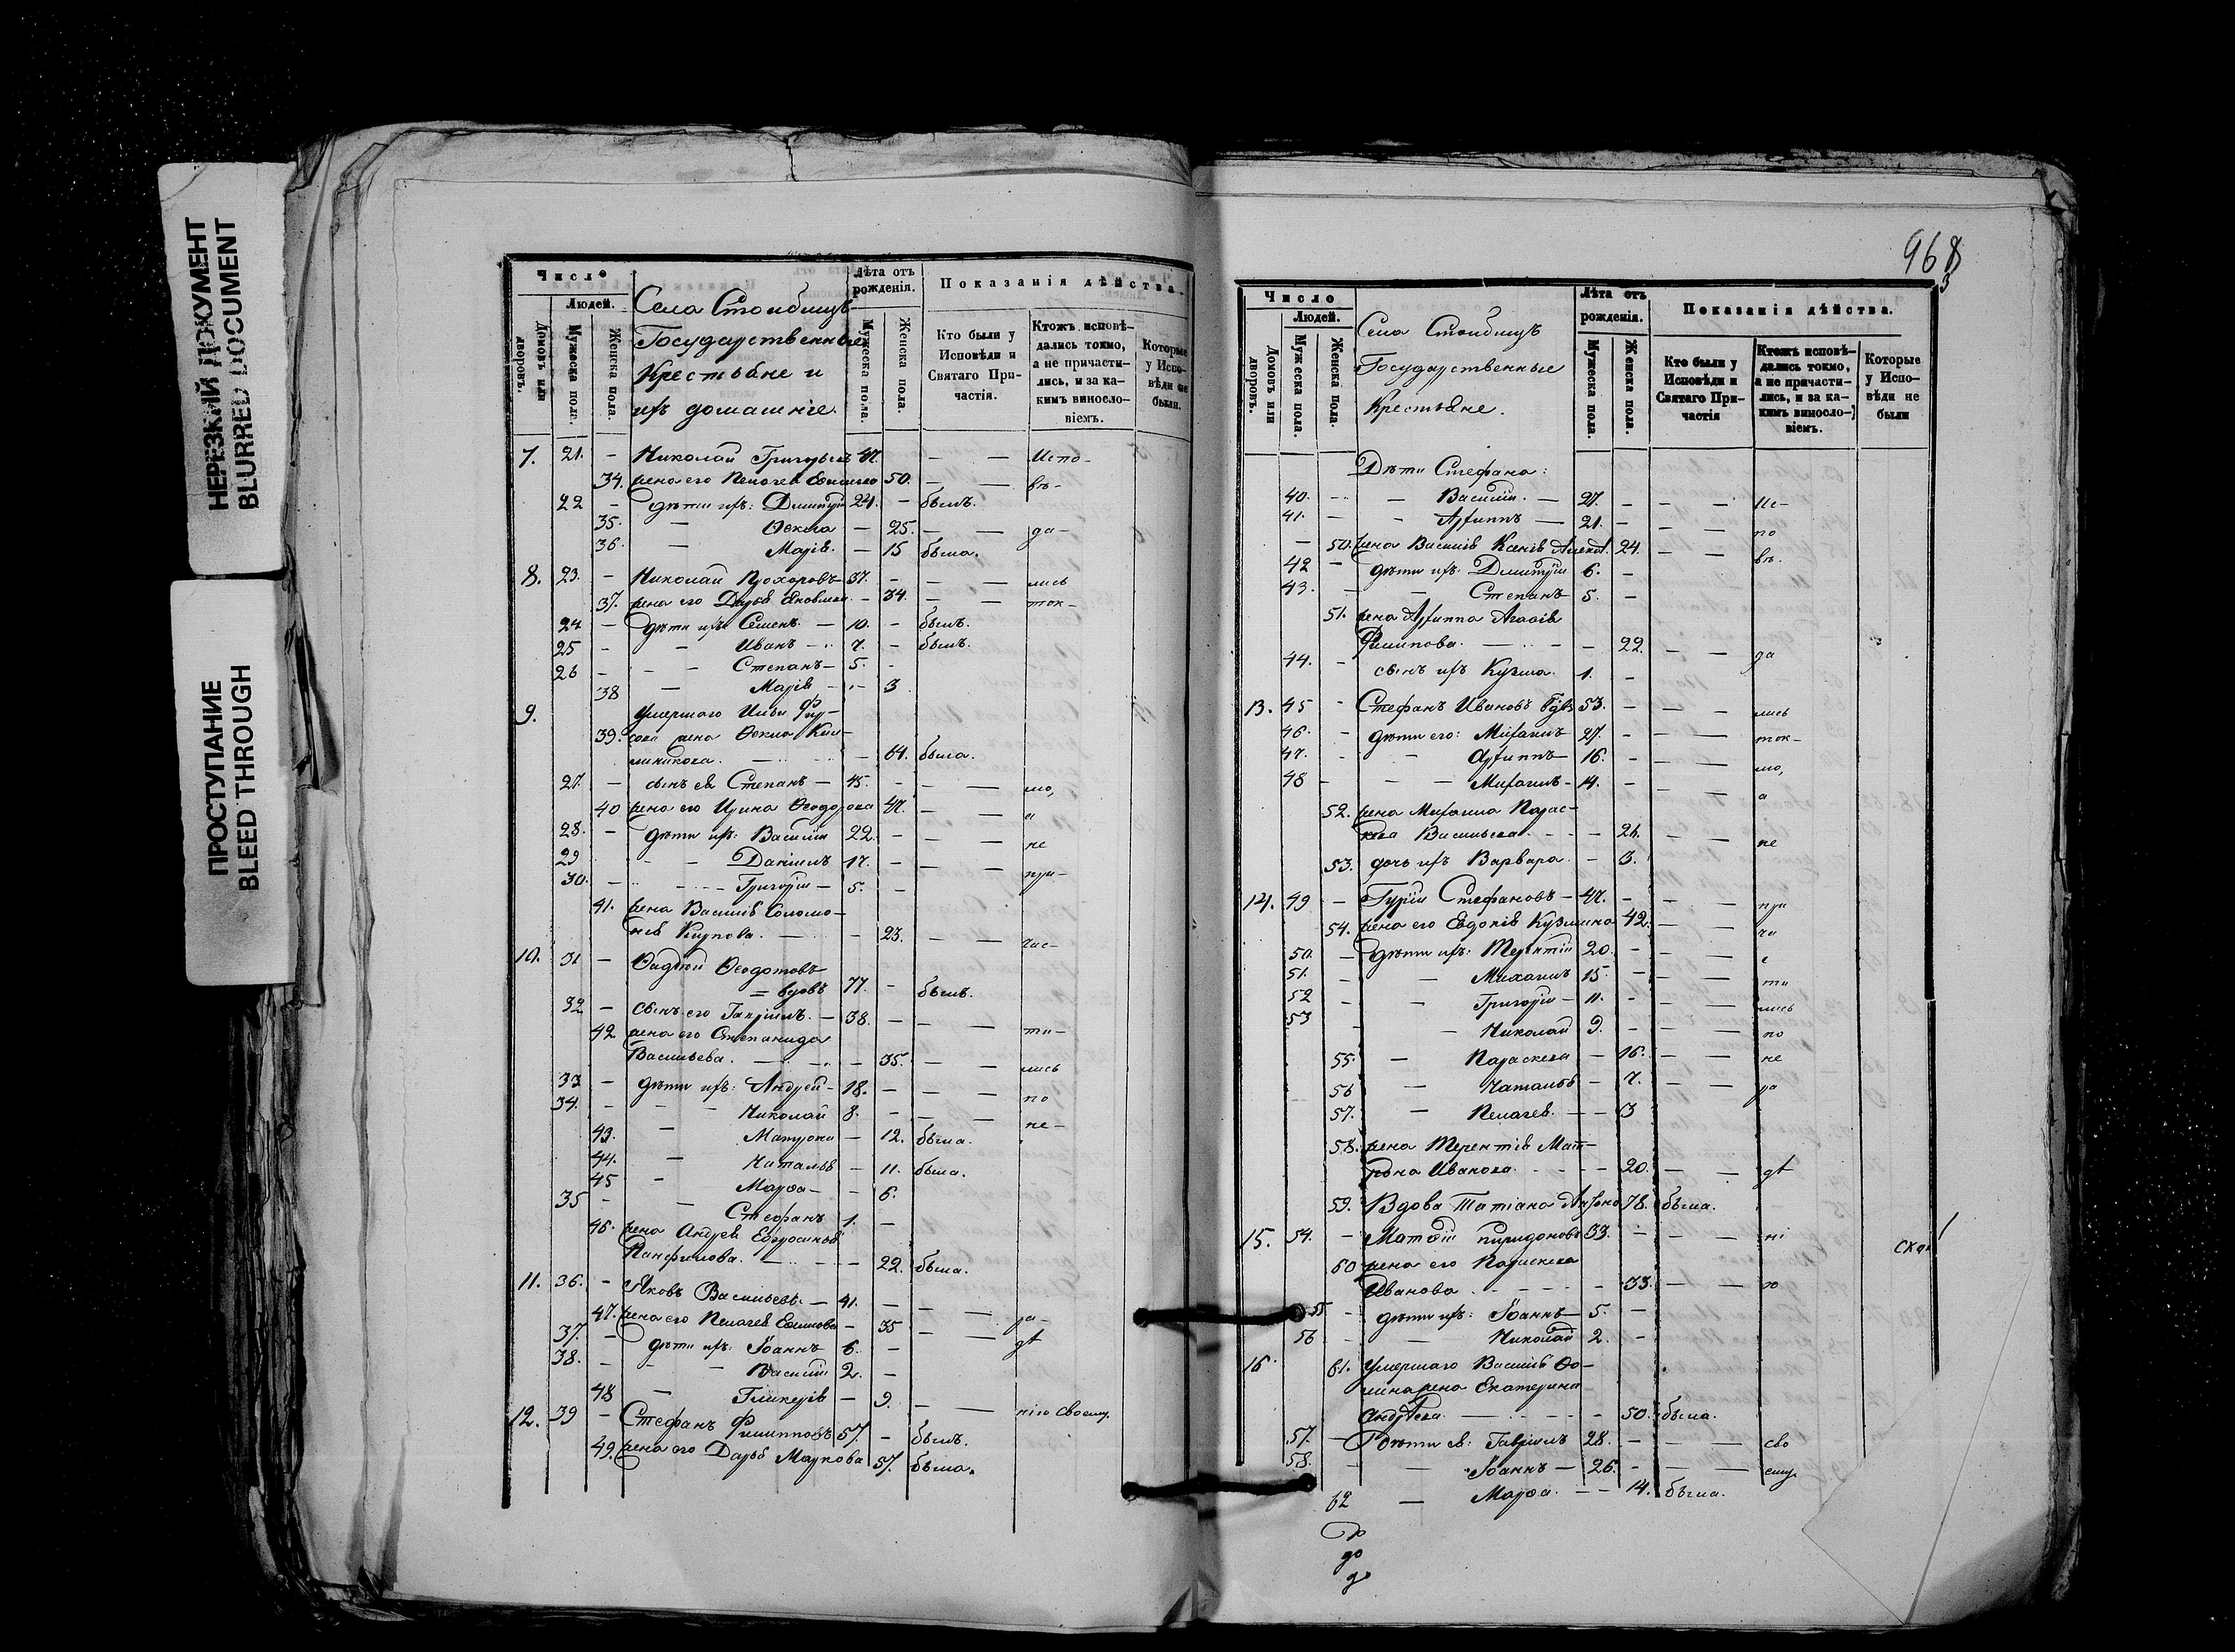 НЕРЕЗКИЙ ДОКУМЕНТ
BLURRED DOCUMENT
ПРОСТУПАНИЕ
BLEED THROUGH
Число
Людей.
Домовъ или дворовъ.
Мужеска пола.
Женска пола.
Села
Государственные
Крестьяне и
ихъ домашніе.
Лѣта отъ рожденія.
Мужеска пола.
Женска пола.
Показанія дѣйства.
Кто были у Исповѣди и Святаго Причастія.
Ктожъ исповѣдались токмо, а не причастились, и за какимъ винословіемъ.
Которые у Исповѣди не были.
7. 21. – Николай Григорьевъ 47. – – Испо-
34. жена его Пелагея 50. – – вѣ-
22 – дѣти ихъ: Димитрій 24. – былъ.
35. – Ѳекла – 25. – – да-
36. – Марія. – 15 была.
8. 23. – Николай Прохоровъ 37. – – – лись
37. жена его Дарья Яковлева – 34. – – ток-
24. – дѣти ихъ: Семенъ. – 10. – былъ.
25 – – Иванъ – 7. – былъ.
26 – – – Степанъ – 5. –
38 – Марія – – 3
9. умершаго Ильи
39. жена Ѳекла
– 64. была.
27. – сынъ ея Степанъ – 45. – – – мо,
40 жена его Ирина Ѳеодорова 47. – – а
28. – дѣти ихъ: Василій 22. – – – не
29 – – Даніилъ 17. – – – при-
30. – – – Григорій – 5. –
41. жена Василія Соломо-
нія Карпова. – – 23. – – час-
10. 31 – Ѳеодотовъ
= вдовъ 77. – былъ.
32 – сынъ его Гавріилъ. – 38. – – – ти-
42 жена его Степанида
Васильева. – – 35. – – лись
33 – дѣти ихъ: Андрей – 18. – – – по
34. – – – Николай 8. – – – не-
43. – Матрона – 12. была.
44. – Наталья – 11. была.
45 – Марѳа – – 6.
35 – – Стефанъ 1. –
46. жена Андрея Евфросинья
Панфилова. – – 22. была.
11. 36. – Яковъ Васильевъ. – 41. – – – ра-
47. жена его Пелагея Ефимова – 35 – – дѣ
37. – дѣти ихъ: Іоаннъ 6. –
38. – – – Василій 2. –
48 – Гликерія – 9. – – нію своему.
12. 39 – Стефанъ Филипповъ 57. – былъ.
49. жена его Дарья Маркова 57. была.
968
3
Число
Людей.
Домовъ или дворовъ.
Мужеска пола.
Женска пола.
Села
Государственные
Крестьяне.
Лѣта отъ рожденія.
Мужеска пола.
Женска пола.
Показанія дѣйства.
Кто были у Исповѣди и Святаго Причастія
Ктожъ исповѣдались токмо, а не причастились, и за какимъ винословіемъ.
Которые у Исповѣди не были
Дѣти Стефана:
40. – – Василій. – 27. – – – Ис-
41. – – Архиппъ – 21. – – – по
– 50. жена Василія Ксенія 24. – – вѣ.
42 – дѣти ихъ: Димитрій 6. –
43. – – Степанъ 5. –
51. жена Архиппа Агаѳія
Филипова. – – – 22. – – да
44. – сынъ ихъ Кузма. 1. –
13. 45 – Стефанъ Ивановъ вдвъ 53. – – – лись
46. – дѣти его: Михаилъ – 27. – – – ток-
47. – – Архиппъ – 16. – – – мо,
48 – – – Михаилъ – 14. – – – а
52. жена Михаила Парас-
кева Васильева. – – – 24. – – не
53. дочь ихъ Варвара. – 3.
14. 49 – Гурій Стефановъ – 47. – – – при
54. жена его Евдокія Кузмина 42. – – ча
50. – дѣти ихъ: Терентій 20. – – – с
51. – – Михаилъ 15. – – – ти
52 – – Григорій – 11. – – – лись
53 – – Николай 9. – – – по
55. – Параскева – 16. – – не
56 – Наталья – 7. – – ра
57. – Пелагея. – – 3
58. жена Терентія Мат-
рона Иванова. – – – 20. – – дѣ
59. Вдова Татіана 78. была.
15. 54. – Матѳій 33. – – – ні
60 жена его Параскева
Иванова. – – – – 33. – – ю
55 – дѣти ихъ: Іоаннъ – 5. –
56 – – Николай 2. –
16. 61. умершаго Василія Ѳо-
мина жена Екатерина
Андреева. – – – 50. была.
57. – дѣти ея: Гавріилъ 28. – – – сво
58. – – Іоаннъ – 26. – – – ему.
62 – Марѳа. – – 14. была.